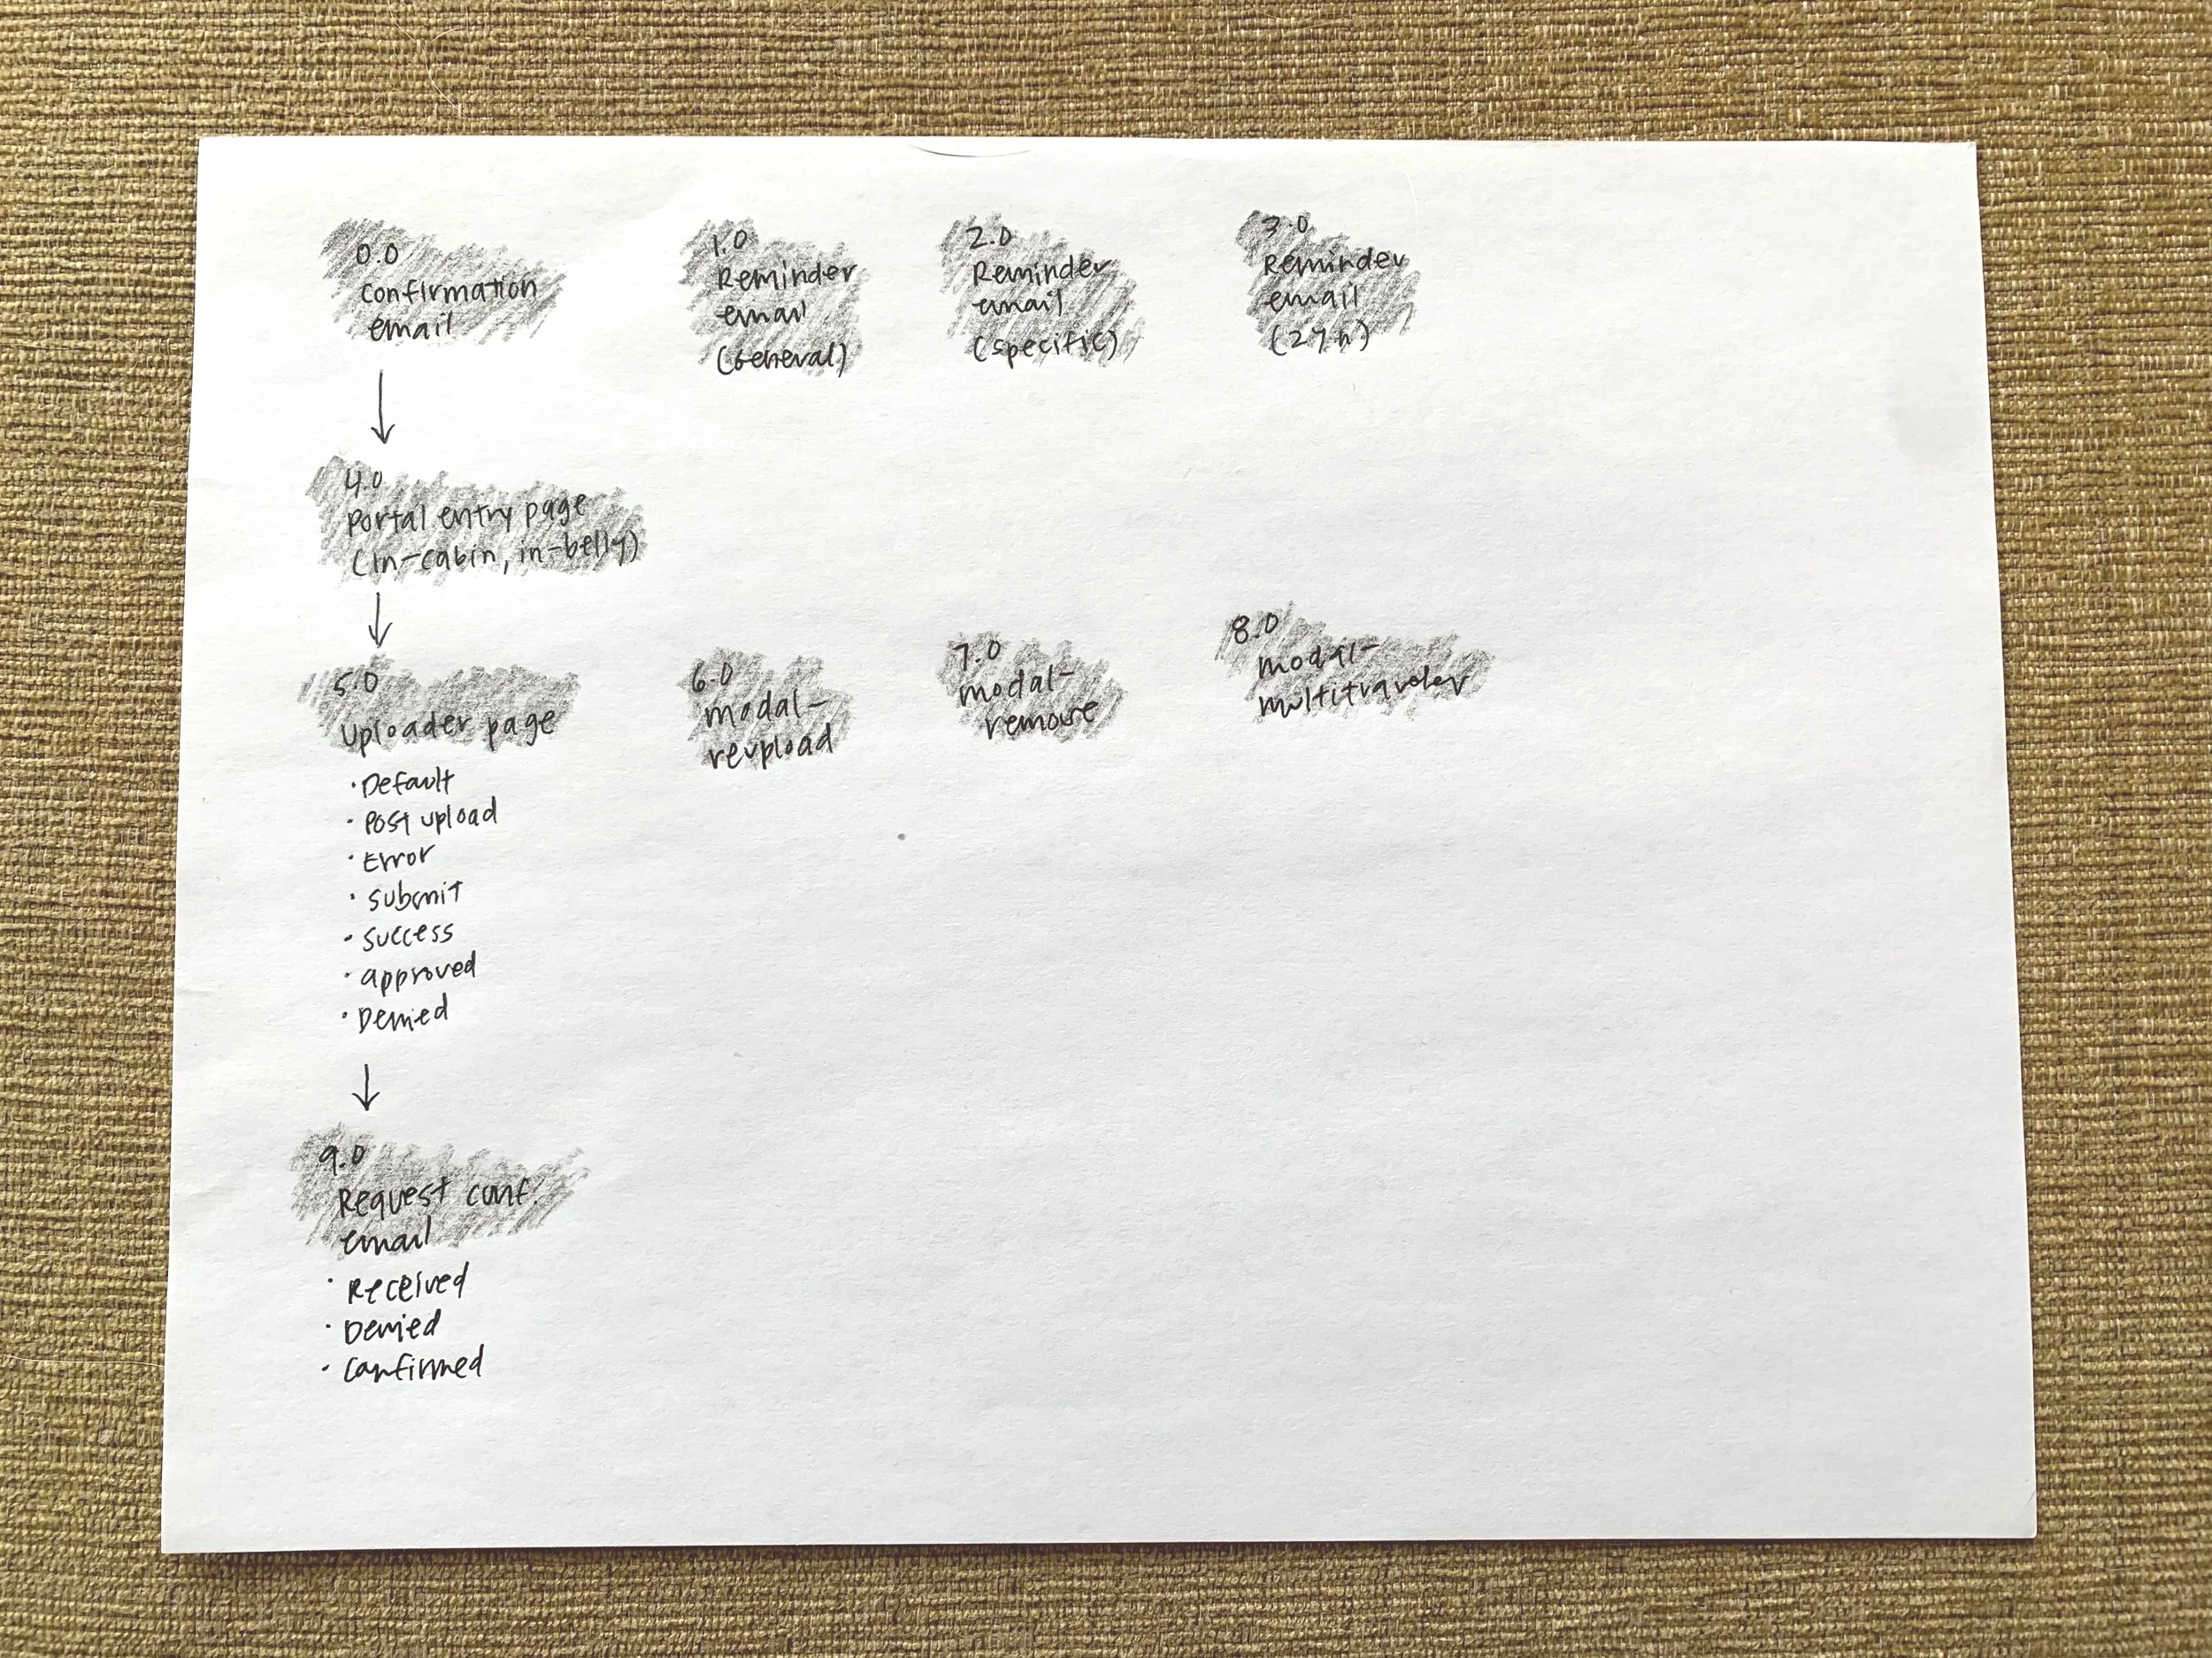 0.0
confirmation
email
1.0
Reminder
email
(General)
2.0
Reminder
email
(specific)
3.0
Reminder
email
(24h)
4.0
Portal entry page
(in-cabin, in-belly)
5.0
Uploader page
· Default
· Post upload
· Error
· Submit
· Success
· approved
· Denied
6.0
modal-
reupload
7.0
modal-
remove
8.0
modal-
multitraveler
9.0
Request conf.
email
· Received
· Denied
· Confirmed